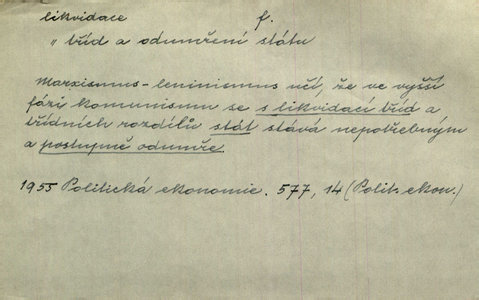 likvidace f.
" tříd a odumření státu
Marxismus-leninismus učí, že ve vyšší
fázi komunismu se s likvidací tříd a
třídních rozdílů stát stává nepotřebným
a postupně odumře.
1955 Politická ekonomie. 577, 14 (Polit. ekon.)